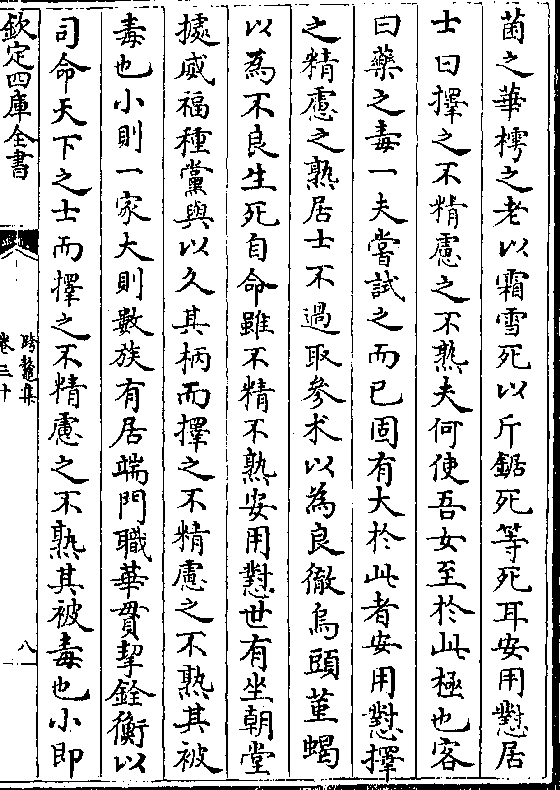 菌之華樗之老以霜雪死以斤鋸死等死耳安用懟居
士曰擇之不精慮之不熟夫何使吾女至於此極也客
曰藥之毒一夫嘗試之而已固有大於此者安用懟擇
之精慮之熟居士不過取參朮以為良徹烏頭堇蝎
以為不良生死自命雖不精不熟安用懟世有坐朝堂
據威福種黨與以久其柄而擇之不精慮之不熟其被
毒也小則一家大則數族有居端門職華貫挈銓衡以
司命天下之士而擇之不精慮之不熟其被毒也小即
欽定四庫全書
跨鼇集
卷三十
八